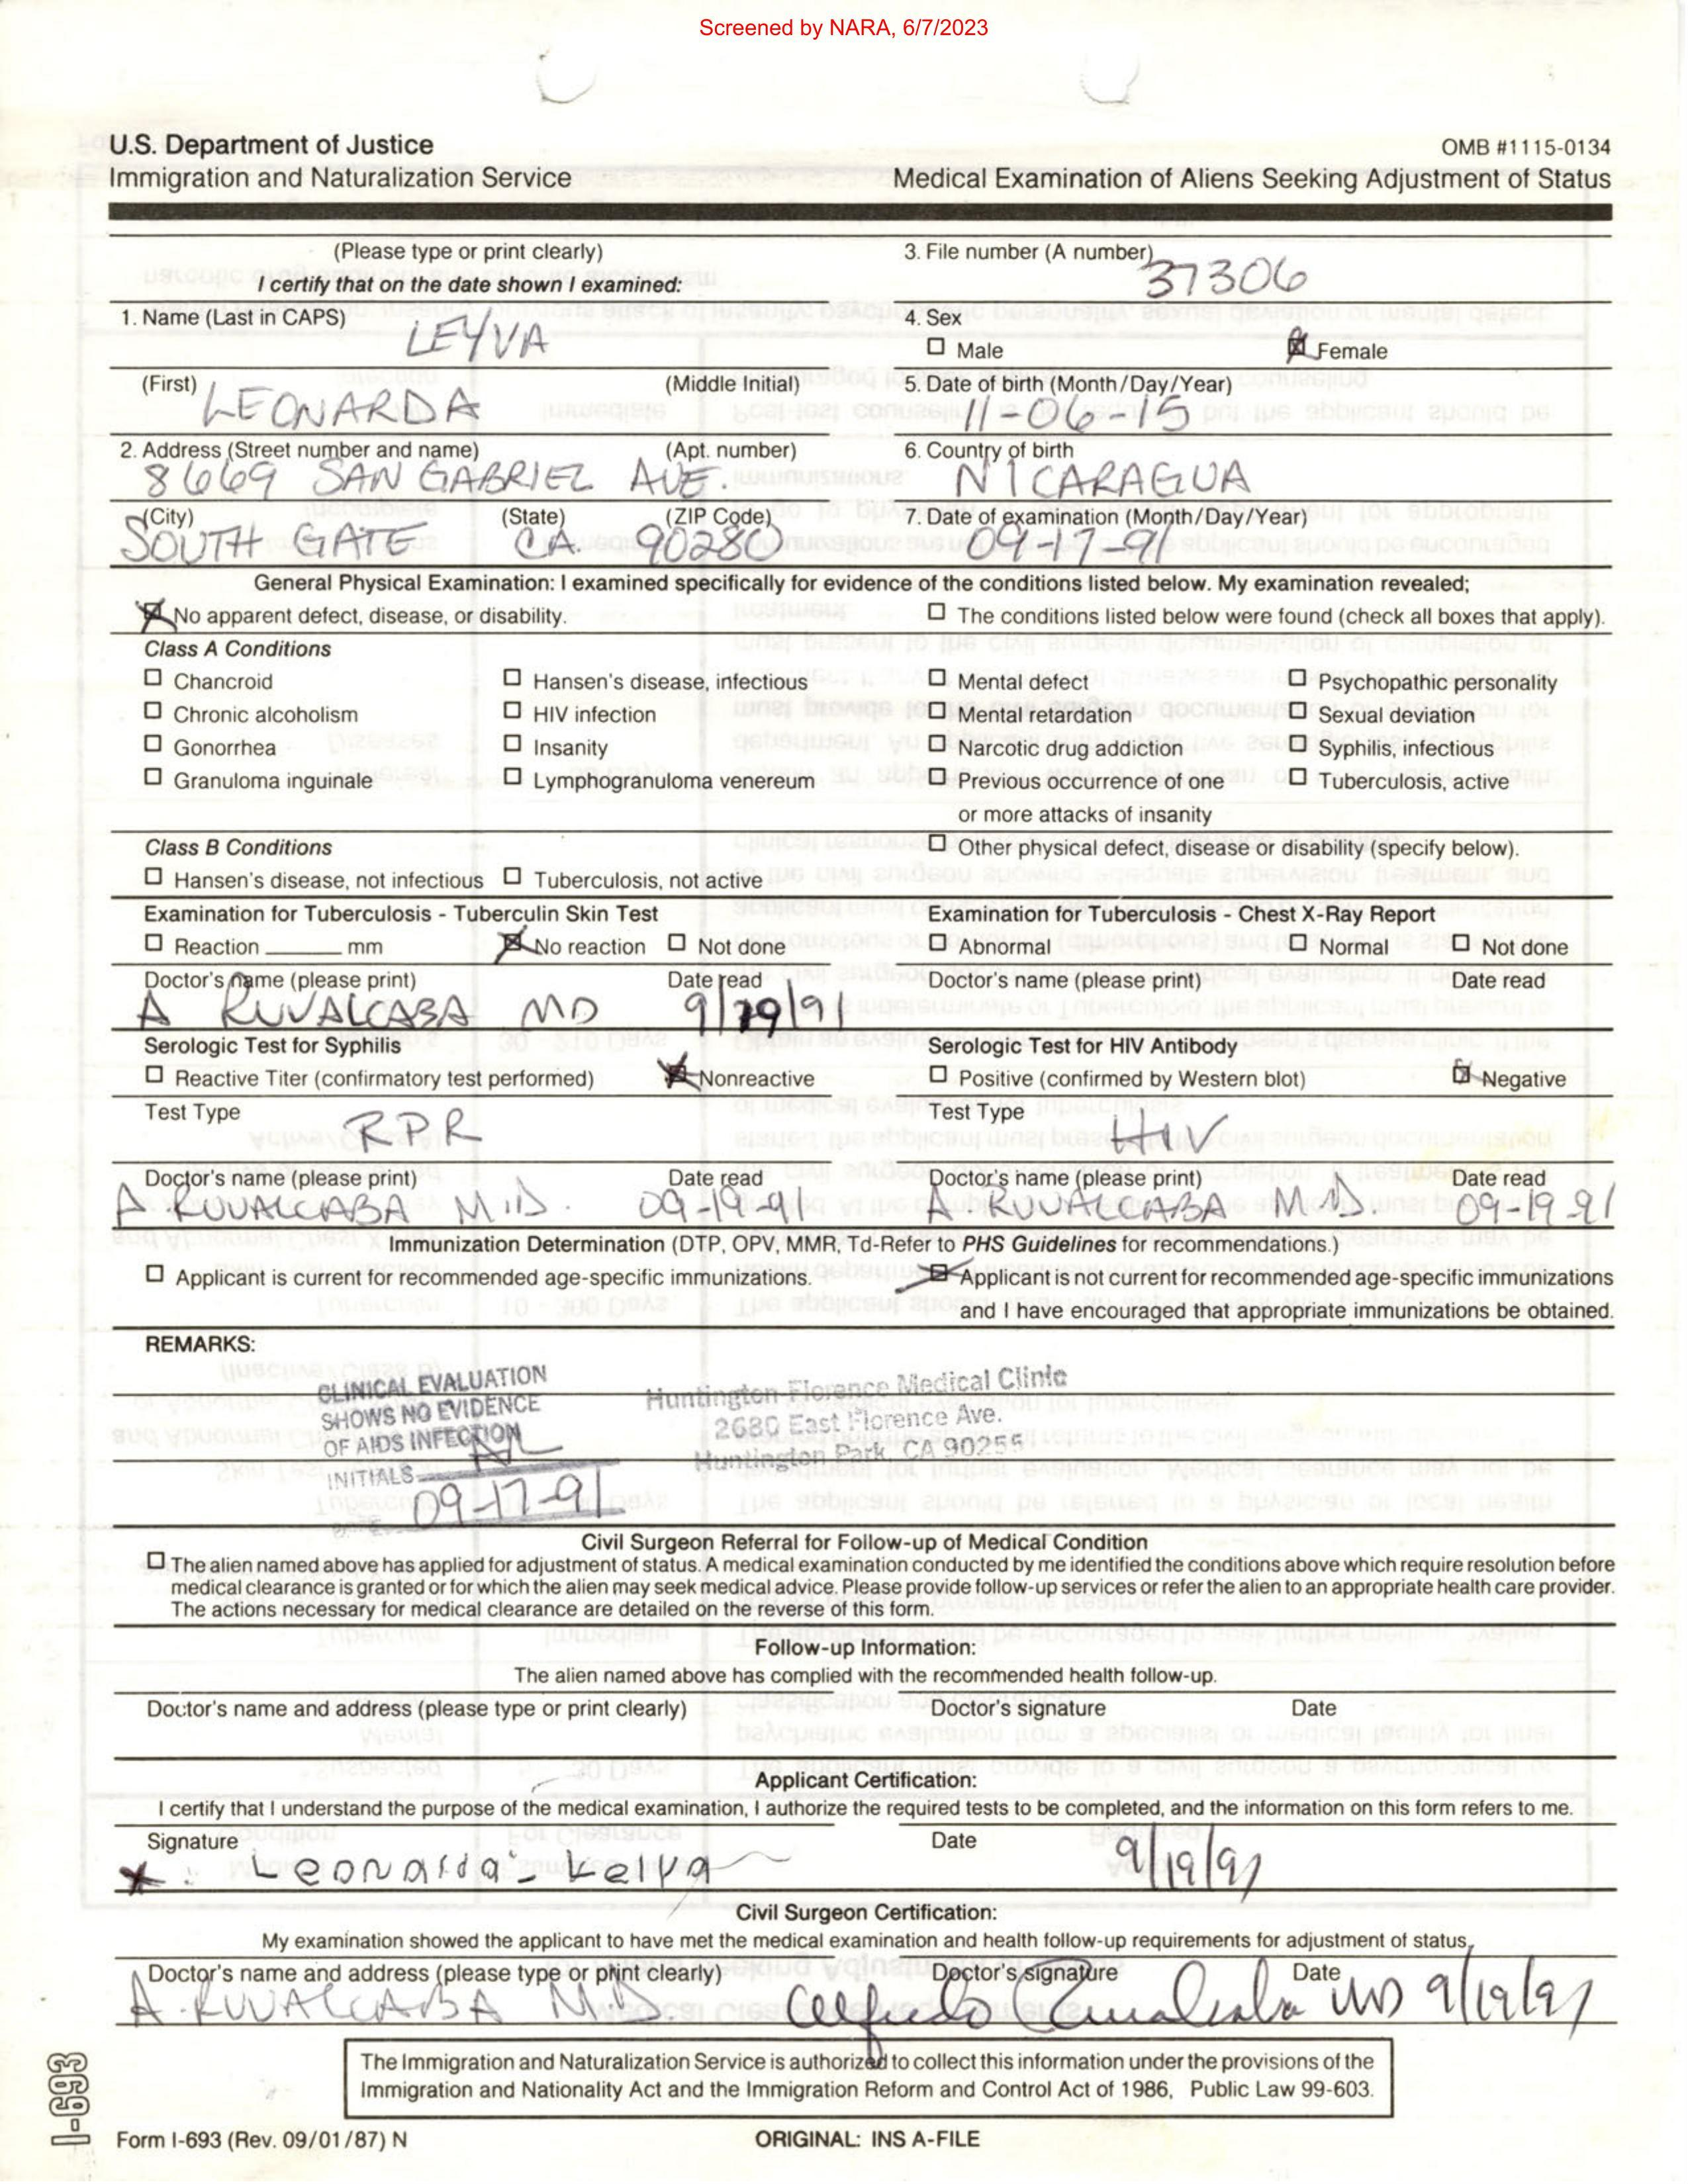 Screened by NARA, 6/7/2023
U.S. Department of Justice
OMB #1115-0134
Immigration and Naturalization Service
Medical Examination of Aliens Seeking Adjustment of Status
(Please type or print clearly)
I certify that on the date shown I examined:
3. File number (A number)
37306
1. Name (Last in CAPS)
LEYVA
4. Sex
☐ Male ☒ Female
(First) (Middle Initial)
LEONARDA
5. Date of birth (Month/Day/Year)
11-06-15
2. Address (Street number and name) (Apt. number)
8669 SAN GABRIEL AVE.
6. Country of birth
NICARAGUA
(City) (State) (ZIP Code)
SOUTH GATE CA. 90280
7. Date of examination (Month/Day/Year)
09-17-91
General Physical Examination: I examined specifically for evidence of the conditions listed below. My examination revealed;
☒ No apparent defect, disease, or disability. ☐ The conditions listed below were found (check all boxes that apply).
Class A Conditions
☐ Chancroid ☐ Hansen's disease, infectious ☐ Mental defect ☐ Psychopathic personality
☐ Chronic alcoholism ☐ HIV infection ☐ Mental retardation ☐ Sexual deviation
☐ Gonorrhea ☐ Insanity ☐ Narcotic drug addiction ☐ Syphilis, infectious
☐ Granuloma inguinale ☐ Lymphogranuloma venereum ☐ Previous occurrence of one ☐ Tuberculosis, active
or more attacks of insanity
Class B Conditions ☐ Other physical defect, disease or disability (specify below).
☐ Hansen's disease, not infectious ☐ Tuberculosis, not active
Examination for Tuberculosis - Tuberculin Skin Test Examination for Tuberculosis - Chest X-Ray Report
☐ Reaction ______ mm ☒ No reaction ☐ Not done ☐ Abnormal ☐ Normal ☐ Not done
Doctor's name (please print) Date read Doctor's name (please print) Date read
A RUVALCABA MD 9/19/91
Serologic Test for Syphilis Serologic Test for HIV Antibody
☐ Reactive Titer (confirmatory test performed) ☒ Nonreactive ☐ Positive (confirmed by Western blot) ☒ Negative
Test Type RPR Test Type HIV
Doctor's name (please print) Date read Doctor's name (please print) Date read
A RUVALCABA M.D. 09-19-91 A RUVALCABA M.D. 09-19 91
Immunization Determination (DTP, OPV, MMR, Td-Refer to PHS Guidelines for recommendations.)
☐ Applicant is current for recommended age-specific immunizations. ☒ Applicant is not current for recommended age-specific immunizations
and I have encouraged that appropriate immunizations be obtained.
REMARKS:
CLINICAL EVALUATION
SHOWS NO EVIDENCE
OF AIDS INFECTION
INITIALS
09-17-91
Huntington Florence Medical Clinic
2680 East Florence Ave.
Huntington Park, CA 90255
Civil Surgeon Referral for Follow-up of Medical Condition
☐ The alien named above has applied for adjustment of status. A medical examination conducted by me identified the conditions above which require resolution before
medical clearance is granted or for which the alien may seek medical advice. Please provide follow-up services or refer the alien to an appropriate health care provider.
The actions necessary for medical clearance are detailed on the reverse of this form.
Follow-up Information:
The alien named above has complied with the recommended health follow-up.
Doctor's name and address (please type or print clearly) Doctor's signature Date
Applicant Certification:
I certify that I understand the purpose of the medical examination, I authorize the required tests to be completed, and the information on this form refers to me.
Signature Date
Leonarda Leiva 9/19/91
Civil Surgeon Certification:
My examination showed the applicant to have met the medical examination and health follow-up requirements for adjustment of status.
Doctor's name and address (please type or print clearly) Doctor's signature Date
A. RUVALCABA M.D. Alfredo Ruvalcaba MD 9/19/91
The Immigration and Naturalization Service is authorized to collect this information under the provisions of the
Immigration and Nationality Act and the Immigration Reform and Control Act of 1986, Public Law 99-603.
I-693
Form I-693 (Rev. 09/01/87) N
ORIGINAL: INS A-FILE